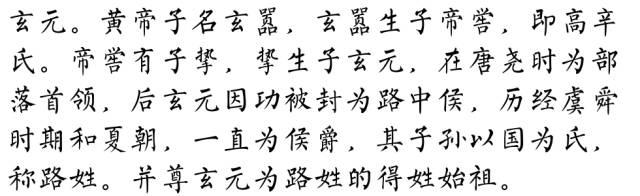 玄元。黄帝子名玄嚣，玄嚣生子帝喾，即高辛
氏。帝喾有子挚，挚生子玄元，在唐尧时为部
落首领，后玄元因功被封为路中侯，历经虞舜
时期和夏朝，一直为侯爵，其子孙以国为氏，
称路姓。并尊玄元为路姓的得姓始祖。